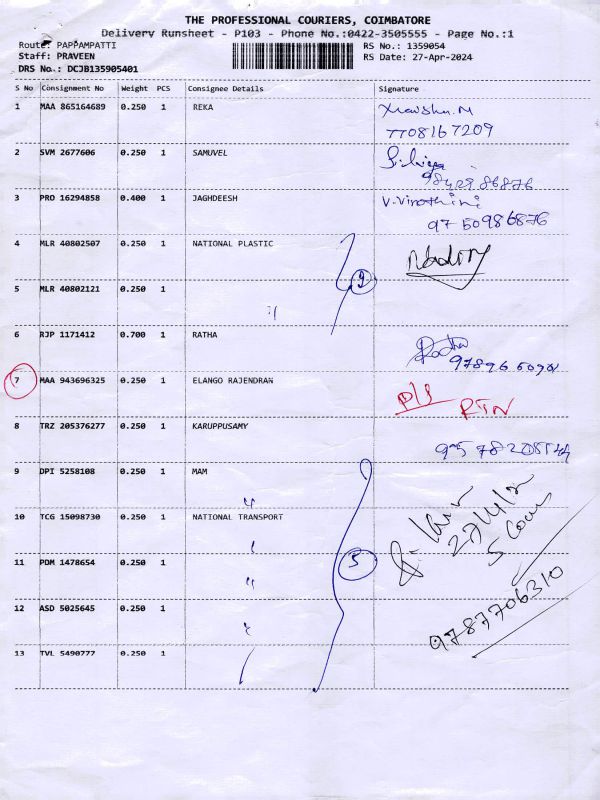 THE PROFESSIONAL COURIERS, COIMBATORE
Delivery Runsheet - P103 - Phone No.:0422-3505555 - Page No.:1
Route: PAPPAMPATTI
RS No.: 1359054
Staff: PRAVEEN
RS Date: 27-Apr-2024
DRS No.: DCJB135905401
S No Consignment No Weight PCS Consignee Details Signature
1 MAA 865164689 0.250 1 REKA
7708167209
2 SVM 2677606 0.250 1 SAMUVEL
3 PRO 16294858 0.400 1 JAGHDEESH V.Virothini
97 50986876
4 MLR 40802507 0.250 1 NATIONAL PLASTIC
5 MLR 40802121 0.250 1 " 2
6 RJP 1171412 0.700 1 RATHA Ratha
7 MAA 943696325 0.250 1 ELANGO RAJENDRAN D/S RTN
8 TRZ 205376277 0.250 1 KARUPPUSAMY
9 DPI 5258108 0.250 1 MAM
"
10 TCG 15098730 0.250 1 NATIONAL TRANSPORT 27/4/2
11 PDM 1478654 0.250 1 5 5 Cour
"
12 ASD 5025645 0.250 1 9787706310
"
13 TVL 5490777 0.250 1